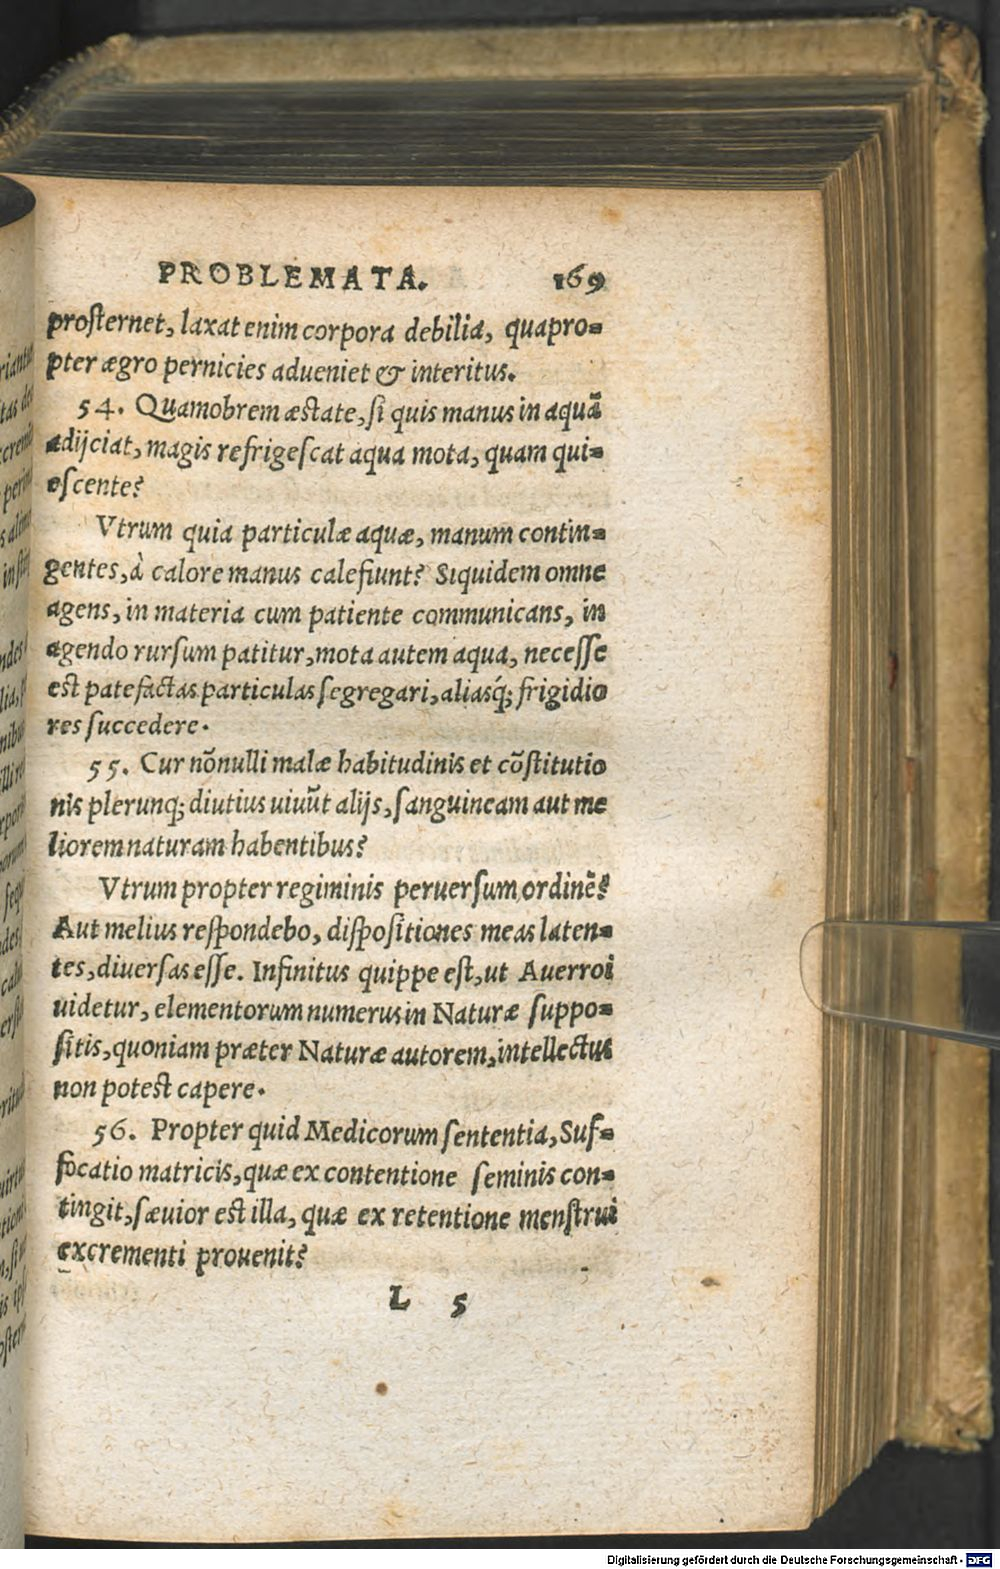 PROBLEMATA. 169
prosternet, laxat enim corpora debilia, quapro-
pter ægro pernicies adueniet & interitus.
54. Quamobrem æstate, si quis manus in aquã
adijciat, magis refrigescat aqua mota, quam qui-
escente?
Vtrum quia particulæ aquæ, manum contin-
gentes, à calore manus calefiunt? Siquidem omne
agens, in materia cum patiente communicans, in
agendo rursum patitur, mota autem aqua, necesse
est patefactas particulas segregari, aliasq́; frigidio
res succedere.
55. Cur nõnulli malæ habitudinis et cõstitutio
nis plerunq; diutius uiuũt alijs, sanguineam aut me
liorem naturam habentibus?
Vtrum propter regiminis peruersum ordinẽ?
Aut melius respondebo, dispositiones meas laten-
tes, diuersas esse. Infinitus quippe est, ut Auerroi
uidetur, elementorum numerus in Naturæ suppo-
sitis, quoniam præter Naturæ autorem, intellectus
non potest capere.
56. Propter quid Medicorum sententia, Suf-
focatio matricis, quæ ex contentione seminis con-
tingit, sæuior est illa, quæ ex retentione menstrui
excrementi prouenit?
L 5
Digitalisierung gefördert durch die Deutsche Forschungsgemeinschaft - DFG